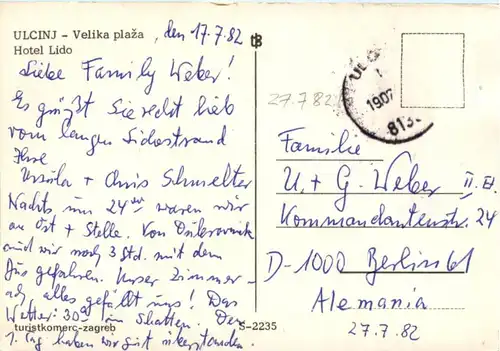 ULCINJ – Velika plaža, den 17.7.82
Hotel Lido
Liebe Family Weber!
Es grüßt Sie recht lieb
vom langen
Ihre
Ursula + Chris Schmelter
Nachts um 24 waren wir
an Ort + Stelle. Von Dubrovnik
sind wir noch 3 Std. mit dem
Bus gefahren. Unser Zimmer –
ach alles gefällt uns! Das
Wetter: 30° im Schatten. Den
1. Tag haben wir gut überstanden.
turistkomerc-zagreb
S-2235
1907
813
27.7.82
Familie
U. + G. Weber
II. Et.
Kommandantenstr. 24
D-1000 Berlin 61
Alemania
27.7.82